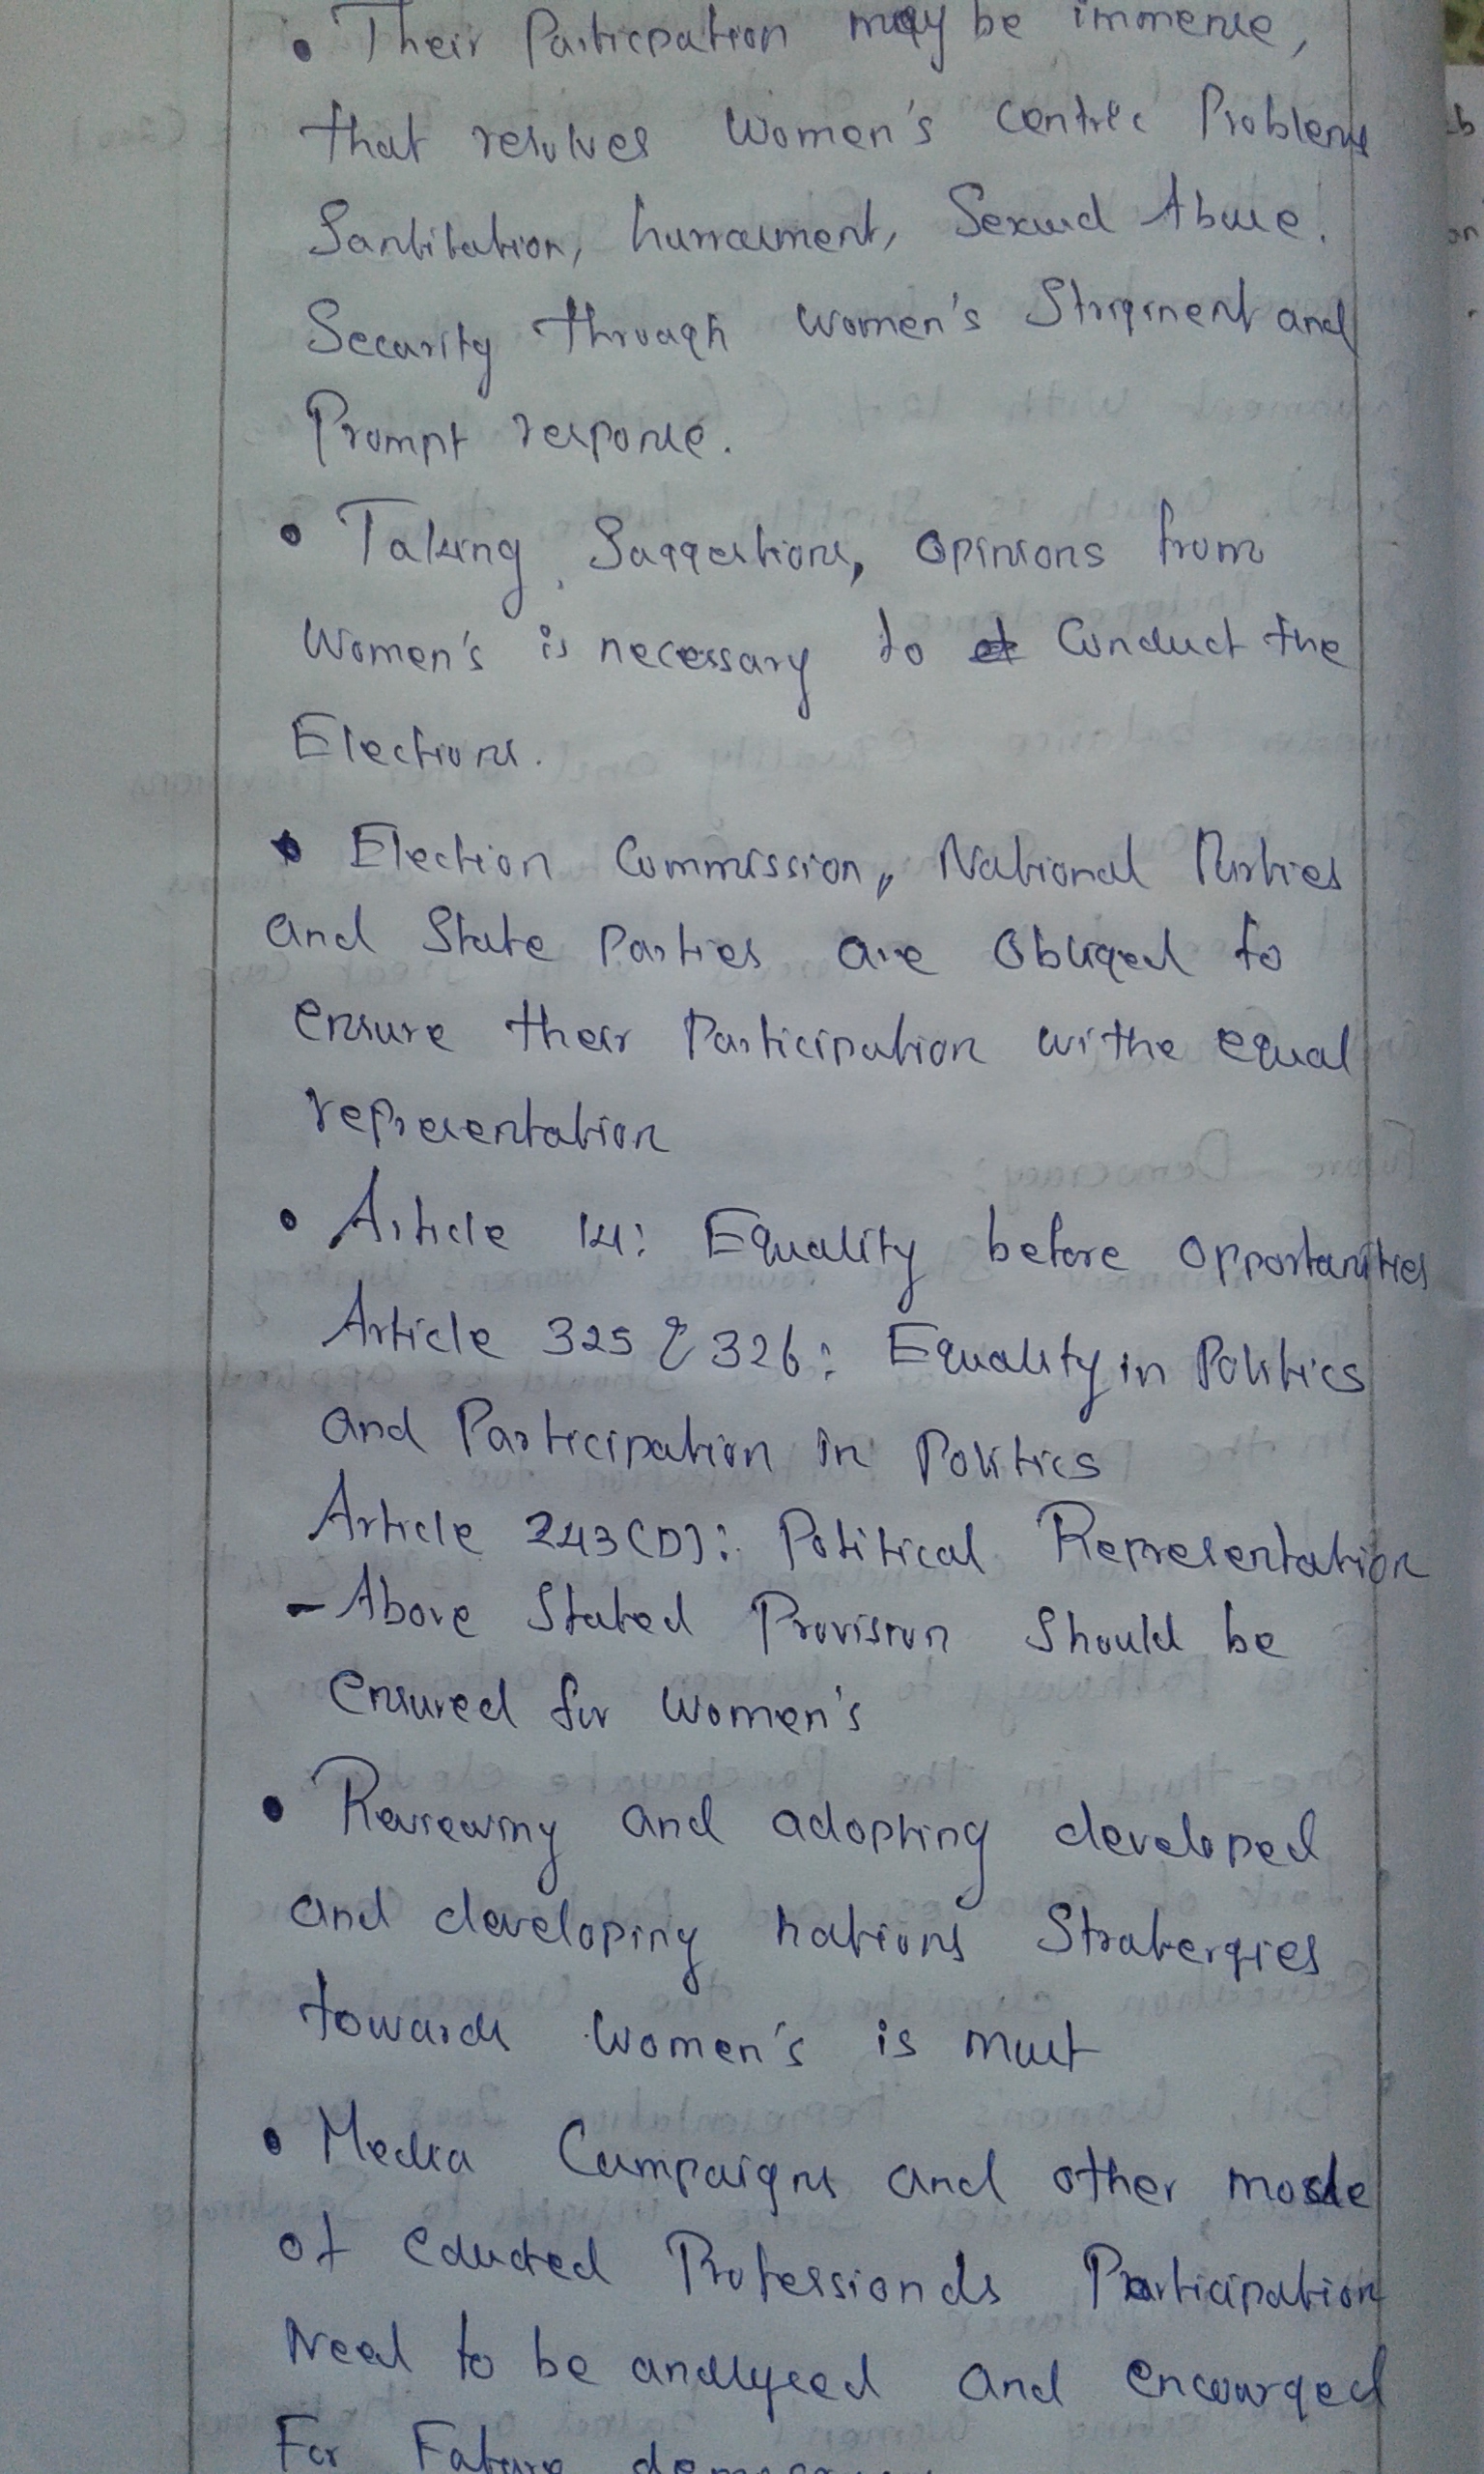 • Their Participation may be immense,
that resolves Women's centric Problems
Santitation, harrasment, Sexual Abuse.
Security through Women's Striginent and
Prompt response.
• Taking Suggestions, opinions from
Women's is necessary to conduct the
Elections.
• Election Commission, National Parties
and State Parties are Obliged to
ensure their Participation withe equal
representation
• Article 14: Equality before opportunities
Article 325 & 326: Equality in Politics
and Participation in Politics
Article 243(D): Political Representation
- Above Stated Provision should be
ensured for Women's
• Reviewing and adopting developed
and developing nations Stratergies
towards Women's is must
• Media Campaigns and other mode
of educted Professionals Participation
Need to be analysed and encourged
For Future